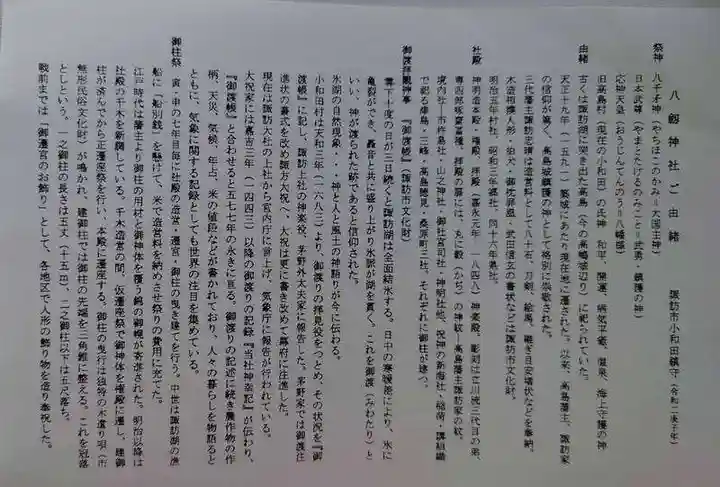 八劔神社ご由緒
諏訪市小和田鎮守(令和二庚子年)
祭神 八千矛神(やちほこのかみ=大国主神)
日本武尊(やまとたけるのみこと=武勇・鎮護の神)
応神天皇(おうじんてんのう=八幡様)
旧高島村(現在の小和田)の氏神 和平、開運、病気平癒、健康、海上守護の神
由緒 古くは諏訪湖に突き出た高島(今の高島城辺り)に祀られていた。
天正十九年(一五九一)築城にあたり現在地に遷された。以来、高島藩主、諏訪家
の信仰が篤く、高島城鎮護の神として格別に崇敬された。
三代藩主諏訪忠晴は造営料として八十石、刀剣、絵馬、継ぎ目安堵状などを奉納。
木造相撲人形・狛犬・御枕屏風・武田信玄の書状などは諏訪市文化財。
明治五年村社、昭和三年郷社、同十六年県社。
社殿 神明造本殿・幣殿、拝殿(嘉永元年 一八四八)神楽殿、彫刻は立川流三代目の弟、
専四郎坂富重種、拝殿の扉には、丸に穀(かぢ)の神紋=高島藩主諏訪家の紋。
境内社・市杵島社・山之神社・御社宮司社・神明社他、祝神の新海社・稲荷・講組織
で祀る津島・三峰・高島鶴見・桑原町三社、それぞれに御柱が建つ。
御渡拝観神事 『御渡帳』(諏訪市文化財)
零下十度の日が三日続くと諏訪湖は全面結氷する。日中の寒暖差により、氷に
亀裂ができ、轟音と共に盛り上がり氷脈が湖を貫く。これを御渡(みわたり)と
いい、神が渡られた跡であると信仰された。
氷湖の自然現象・・・神と人と風土の神語りが今に伝わる。
小和田村は天和三年(一六八三)より御渡りの拝見役をつとめ、その状況を『御
渡帳』に記し、諏訪上社の神楽役、茅野外太夫家に報告した。茅野家では御渡注
進状の書式を改め諏方大祝へ、大祝は更に書き改めて幕府に注進した。
現在は諏訪大社の上社から宮内庁に言上げ、気象庁に報告が行われている。
大祝家には嘉吉三年(一四四三)以降の御渡りの記録『当社神幸記』が伝わり、
『御渡帳』と合わせると五七七年の永きに亘る。御渡りの記述に続き農作物の作
柄、天災、気候、年占、米の値段などが書かれており、人々の暮らしを物語ると
ともに、気象に関する記録としても世界の注目を集めている。
御柱祭 寅・申の七年目毎に社殿の造営・遷宮・御柱の曳き建てを行う。中世は諏訪湖の漁
船に「船別銭」を懸けて、米で造営料を納めさせ祭りの費用に充てた。
江戸時代は藩主より御柱の用材と御神体を覆う錦の御幌が寄進された。明治以降は
社殿の千木を新調している。千木造営の間、仮遷座祭で御神体を権殿に遷し、建御
柱が済んでから正遷座祭を行い、本殿に遷座する。御柱の曳行は独特の木遣り唄(市
無形民俗文化財)が鳴かれ、建御柱では御柱の先端を三角錐に整える。これを冠落
としという。一之御柱の長さは五丈(十五㍍)、二之御柱以下は五尺落ち。
戦前までは「御遷宮のお飾り」として、各地区で人形の飾り物を造り奉祝した。